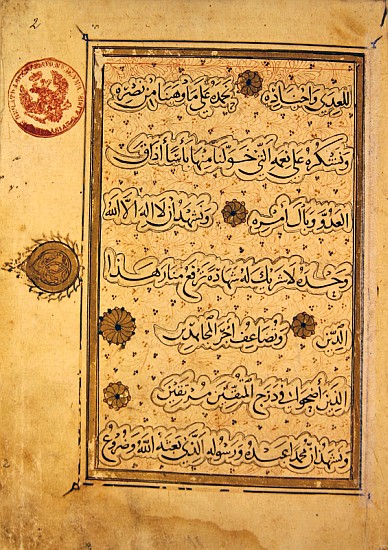 2
1
نحمده على ما وهبنا من نصره
ونشكره على نعمه التي خولنا منها بأسا أذاق
العدو وبال أمره ونشهد أن لا اله الا الله
وحده لا شريك له شهادة ترفع منار هذا
الدين وتضاعف أجر المجاهدين
الذين أضحوا في درج المتقين مرتقين
ونشهد أن محمدا عبده ورسوله الذي بعثه الله وضروع